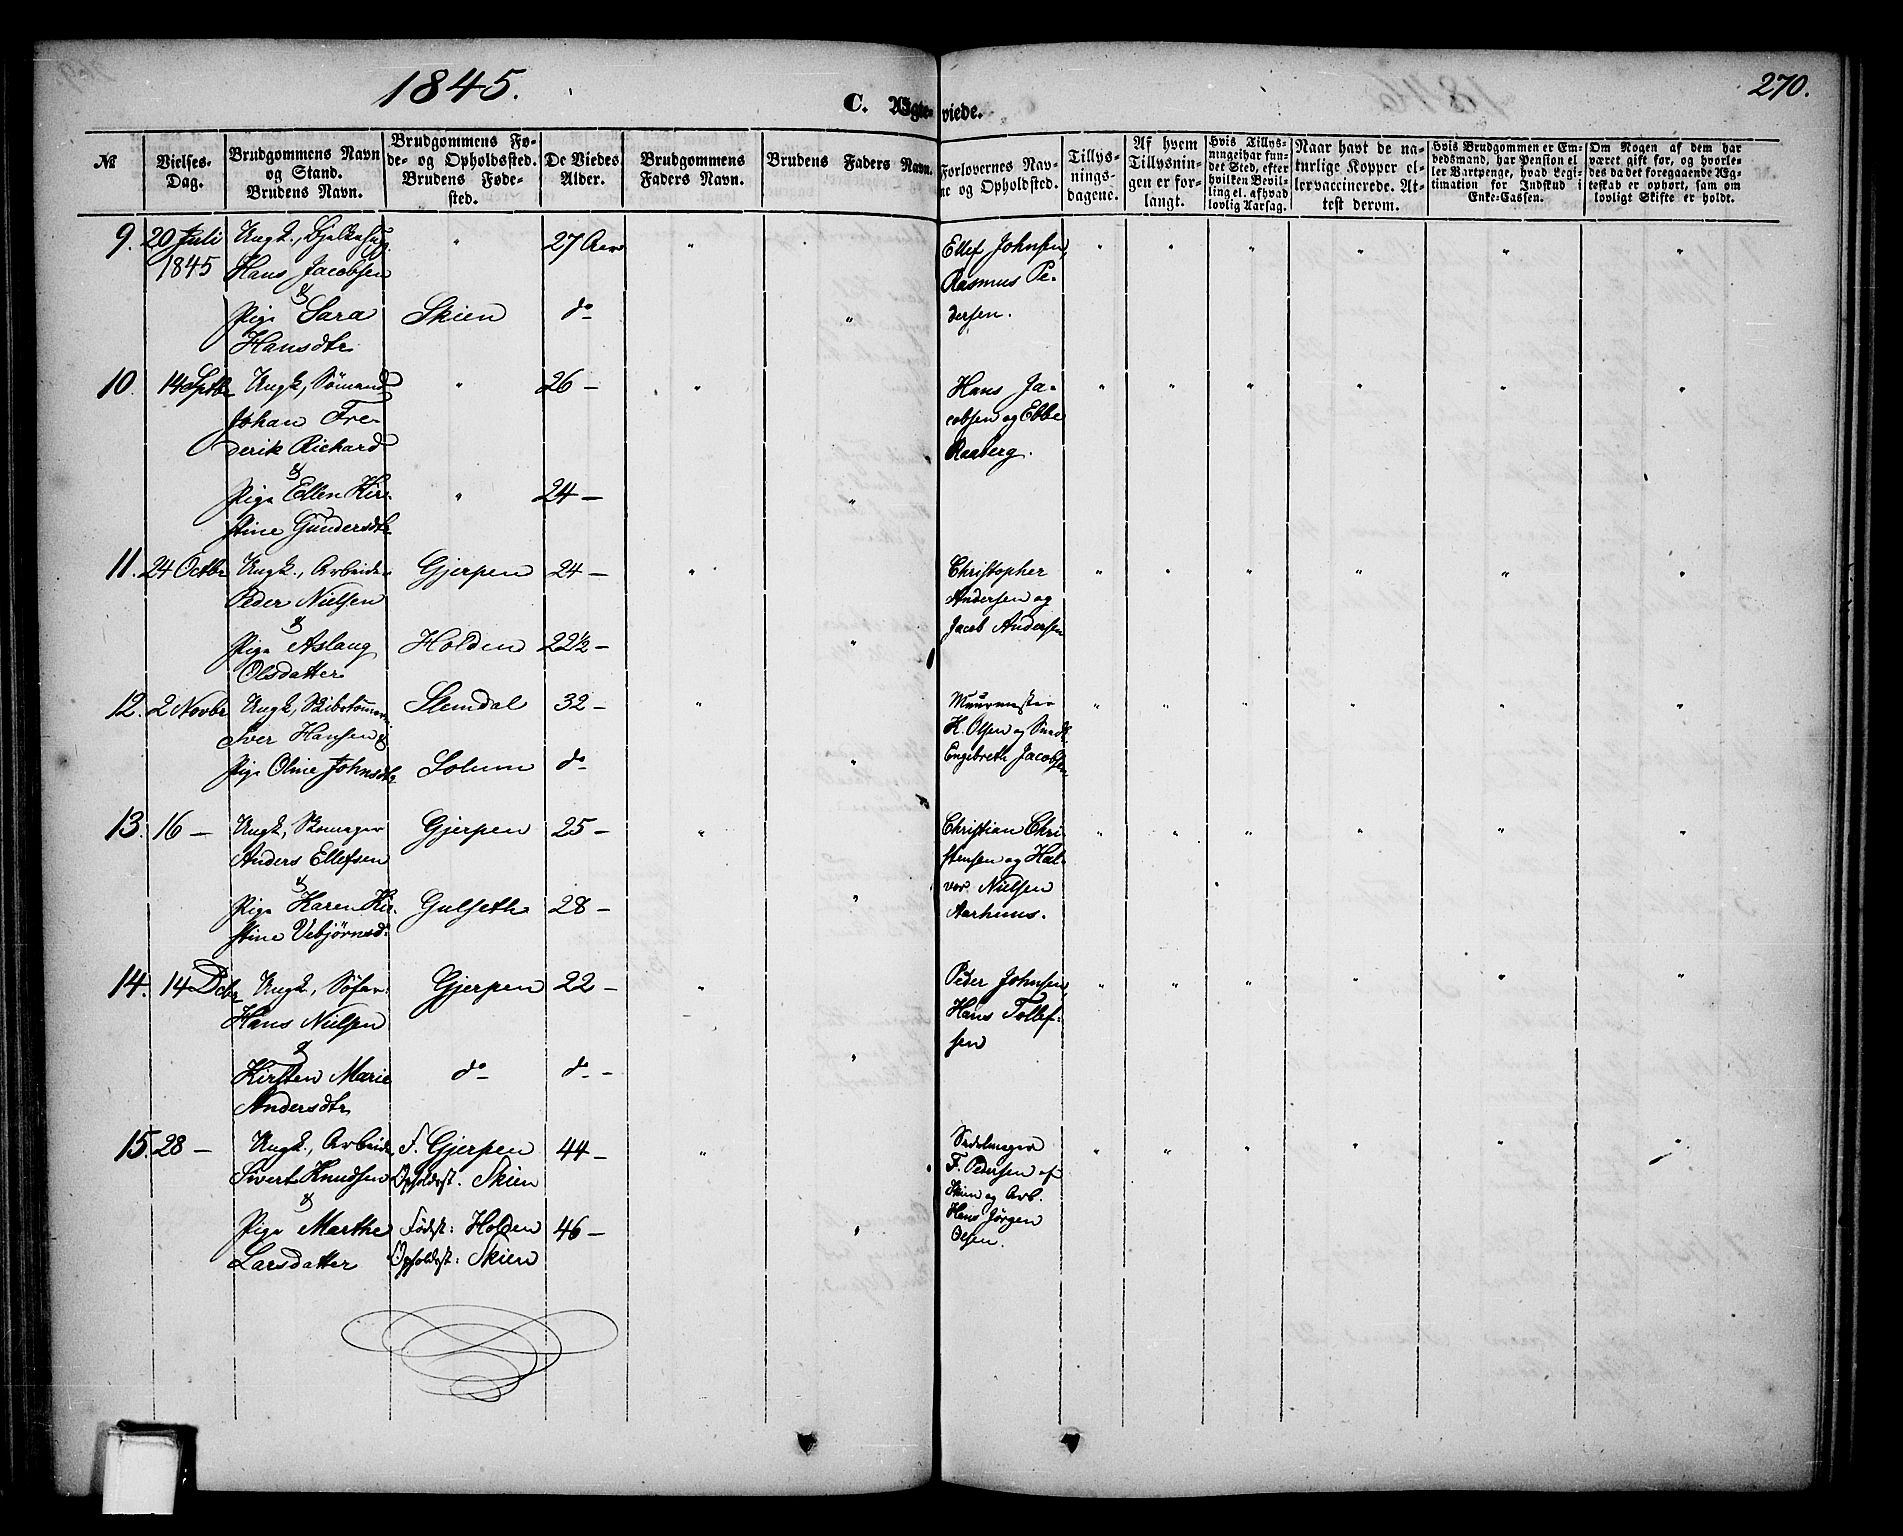 1845.
C. Ægteviede.
270.
№
Vielses-Dag.
Brudgommens Navn og Stand. Brudens Navn.
Brudgommens Føde- og Opholdssted. Brudens Fødested.
De Viedes Alder.
Brudgommens Faders Navn.
Brudens Faders Navn.
Forlovernes Navne og Opholdsted.
Tillysningsdagene.
Af hvem Tillysningen er forlangt.
Hvis Tillysningei har fundet Sted, efter hvilken Bevilling el. afhvad lovlig Aarsag.
Naar havt de naturlige Kopper ellervaccinerede. Attest derom.
Hvis Brudgommen er Embedsmand, har Pension eller Vartpenge, hvad Legitimation for Indskud i Enke-Cassen.
Om Nogen af dem har været gift før, og hvorledes da det foregaaende Ægteskab er ophørt, sam om lovligt Skifte er holdt.
9. 20 Juli Ungk., Bjelkehug. " 27 Aar " Ellef Johnsen, " " " " " "
1845 Hans Jacobsen Rasmus Pe-
& dersen.
Pige Sara Skien do "
Hansdtr
10. 14 Septbr Ungk, Sømand " 26 — " Hans Ja- " " " " " "
Johan Fre- cobsen og Ebbe
derik Richard Raaberg.
&
Pige Ellen Kir- " 24 — "
stine Gundersdtr
11. 24 Octbr Ungk., Arbeider Gjerpen 24 — " Christopher " " " " " "
Peder Nielsen Andersen og
& Jacob Andersen
Pige Aslaug Holden 22½ — "
Olsdatter
12. 2 Novbr Ungk, Skibstømmerm. Slemdal 32 — " Muurmester " " " " " "
Iver Hansen & H. Olsen og Smed
Pige Oline Johnsdtr Solum do " Engebreth Jacobsen
13. 16 — Ungk, Skomager Gjerpen 25 — " Christian Chri- " " " " " "
Anders Ellefsen stensen og Hal-
& vor Nielsen
Pige Karen Kir- Gulseth 28 — " Aarhuus.
stine Vebjørnsd.
14. 14 Dcbr Ungk, Søfar: Gjerpen 22 — " Peder Johnsen, " " " " " "
Hans Nielsen Hans Tollef-
& sen
Kirsten Marie do do — "
Andersdtr
15. 28 — Ungk., Arbeider F. Gjerpen 44 — " Sadelmager " " " " " "
Sivert Knudsen Opholdsst. Skien F. Pedersen af
& Skien og Arb.
Pige Marthe Fødst: Holden 46 — " Hans Jørgen
Larsdatter Opholdsst: Skien Olsen.